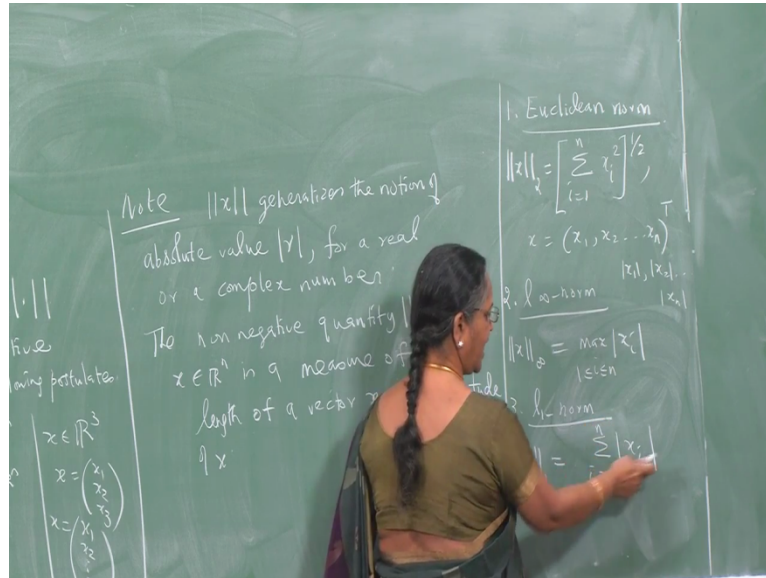 |.||
tive
owing postulates.
x ∈ ℝ³
x = (x₁ x₂ x₃)
x = (x₁ x₂
Note ||x|| generalizes the notion of
absolute value |r|, for a real
or a complex number.
The non negative quantity |
x ∈ ℝⁿ is a measure of
length of a vector x tude
of x
1. Euclidean norm
||x||₂ = [∑ᵢ₌₁ⁿ xᵢ²]^{1/2},
x = (x₁, x₂ ... xₙ)ᵀ
|x₁|, |x₂| ..
|xₙ|
2. l∞-norm
||x||∞ = max |xᵢ|
1≤i≤n
3. l₁-norm
|| = ∑ⁿ |xᵢ|